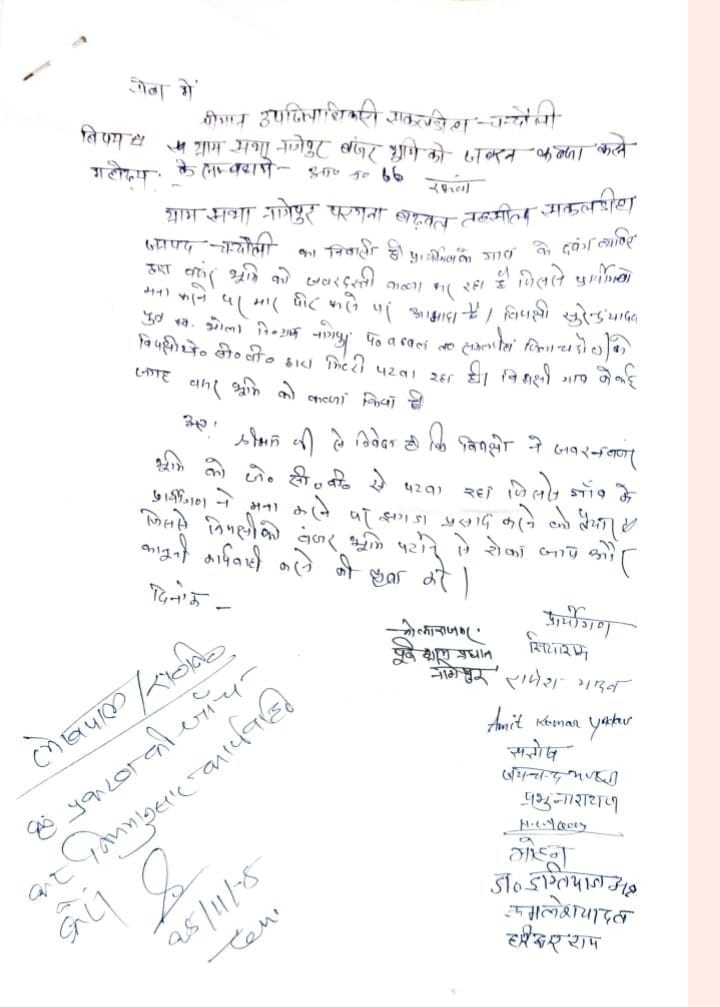 सेवा में
श्रीमान उपजिलाधिकारी सकलडीहा - चन्दौली
विषय ग्राम सभा नागेपुर बंजर भूमि को जबरन कब्जा करने
महोदय, के सम्बन्ध में - आ० न० 66 रकबा
ग्राम सभा नागेपुर परगना बढ़वल तहसील सकलडीहा
जनपद - चन्दौली का निवासी है। प्रार्थीगण के गांव के दबंग व्यक्ति
द्वारा बंजर भूमि को जबरदस्ती कब्जा कर रहा है जिससे प्रार्थीगण
मना करने पर मार पीट करने पर आमादा है। विपक्षी सुरेन्द्र यादव
पुत्र स्व. भोला नि० ग्राम नागेपुर प० बढ़वल त० सकलडीहा जिला चन्दौली को
विपक्षी जे० सी० वी० द्वारा मिट्टी पटवा रहा है। विपक्षी गांव में कई
जगह बंजर भूमि को कब्जा किया है
अतः
श्रीमान जी से निवेदन है कि विपक्षी ने जबरन बंजर
भूमि को जे० सी० वी० से पटवा रहा जिससे गाँव के
प्रार्थीगण ने मना करने पर झगड़ा फसाद करने को तैयार है
जिससे विपक्षी को बंजर भूमि पटाने से रोका जाय और
कानूनी कार्यवाही करने की कृपा करें।
दिनांक -
प्रार्थीगण
पूर्व ग्राम प्रधान
नागेपुर
सियाराम
राजेश यादव
Amit Kumar Yadav
सतोष
जयचन्द
प्रभुनारायण
मोहन
कमलेश यादव
लेखपाल / रा०नि०
प्रकरण की जाँच
कर नियमानुसार कार्यवाही
करें
25/11/25